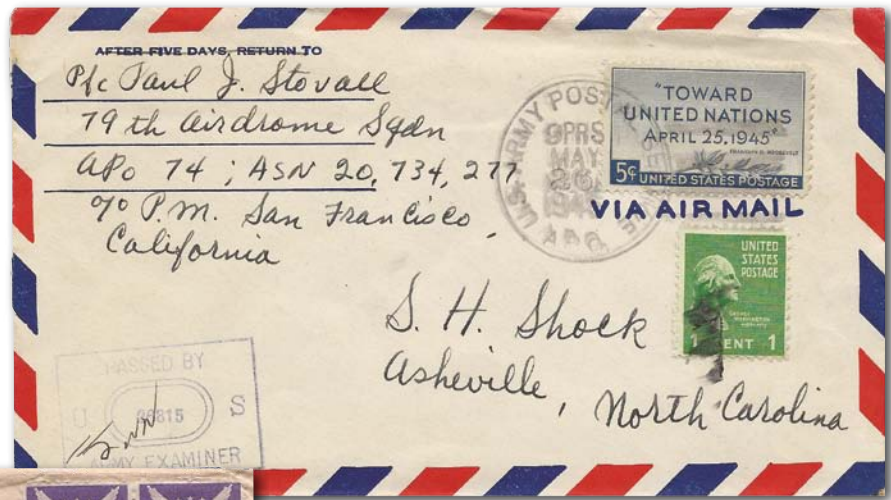 AFTER FIVE DAYS, RETURN TO
Pfc Paul J. Stovall
79th Airdrome Sqdn
APO 74 ; ASN 20, 734, 277
c/o P.M. San Francisco,
California
U.S. ARMY POSTAL SERVICE
9PRS
MAY
26
194
A.P.O.
"TOWARD
UNITED NATIONS
APRIL 25, 1945"
FRANKLIN D. ROOSEVELT
5¢ UNITED STATES POSTAGE
VIA AIR MAIL
UNITED
STATES
POSTAGE
GEORGE
WASHINGTON
1 CENT 1
S. H. Shock
Asheville, North Carolina
PASSED BY
U S
ARMY EXAMINER